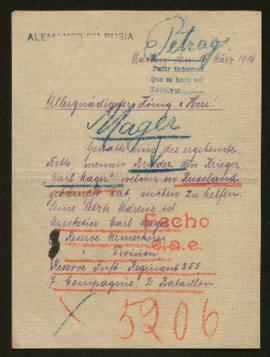 ALEMANES EN RUSIA
Petrog.
den März 1916
Pedir informes
Que se hace así
Devolver
Allergnädigster König u Herr!
Mager
die ergebenste
Bitte meinen Bruder den Krieger
"Carl Mager" welcher in Russland
hat, suchen zu helfen.
Seine letzte Adresse ist:
Musketier Carl Mager
Reserve Armeekorps
Division
Reserve Inft. Regiment 255
7. Compagnie, 2 Bataillon
Fecho
5206